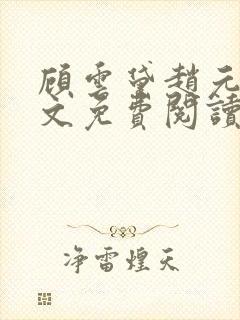 顧雲黛趙元
文免費閱讀
净雷煌天